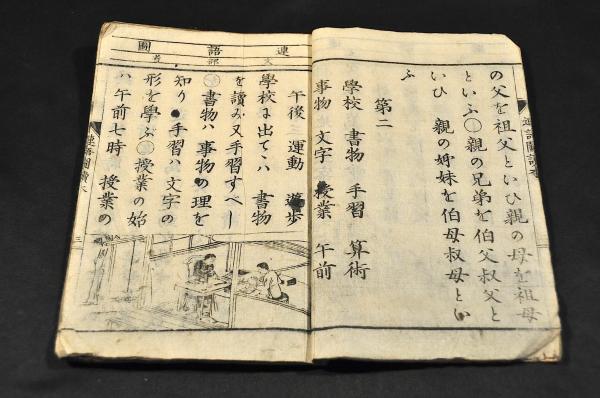 の父を祖父といひ親の母を祖母
といふ○親の兄弟を伯父叔父と
いひ　親の姉妹を伯母叔母とい
ふ
第二
學校　書物　手習　算術
事物　文字　授業　午前
連語圖
午後　運動　遊歩
學校に出てハ　書物
を讀み又手習すべし
○書物ハ事物の理を
知り●手習ハ文字の
形を學ぶ○授業の始
ハ午前七時　授業の